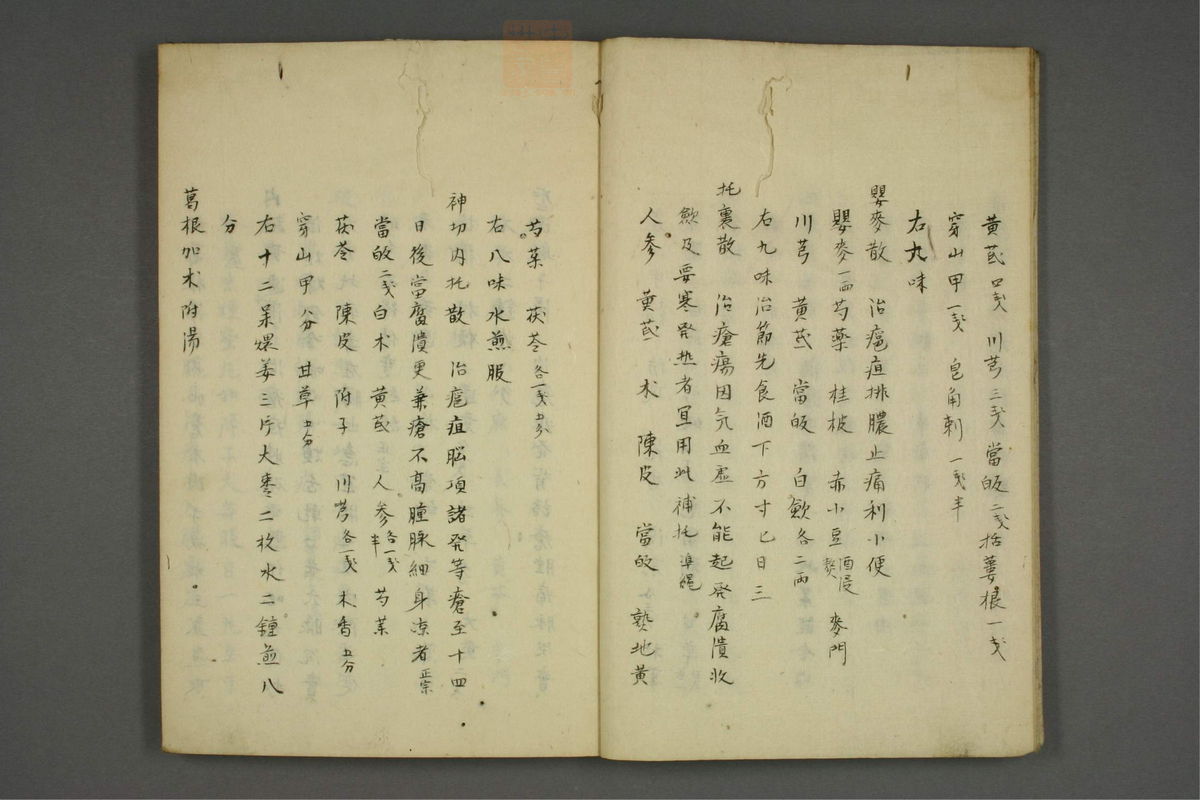 黄芪四戔 川芎三戔 當皈二戔 括蔞根一戔
穿山甲一戔 皂角刺一戔半
右九味
瞿麥散 治癰疽排膿止痛利小便
瞿麥一両 芍薬 桂枝 赤小豆酒浸熬 麥門
川芎 黄芪 當皈 白歛各二両
右九味治節先食酒下方寸匕日三
托裏散 治瘡瘍因気血虚不能起発腐潰收
歛及悪寒発热者宜用此補托準繩
人参 黄芪 术 陳皮 當皈 熟地黄
芍薬 茯苓各一戔五分
右八味水煎服
神功内托散 治癰疽脳項諸発等瘡至十四
日後當腐潰更兼瘡不高腫脉細身凉者正宗
當皈二戔 白术 黄芪 人参各一戔半 芍薬
茯苓 陳皮 附子 川芎各一戔 木香五分
穿山甲八分 甘草五分
右十二味煨姜三片大枣二枚水二鍾煎八
分
葛根加术附湯